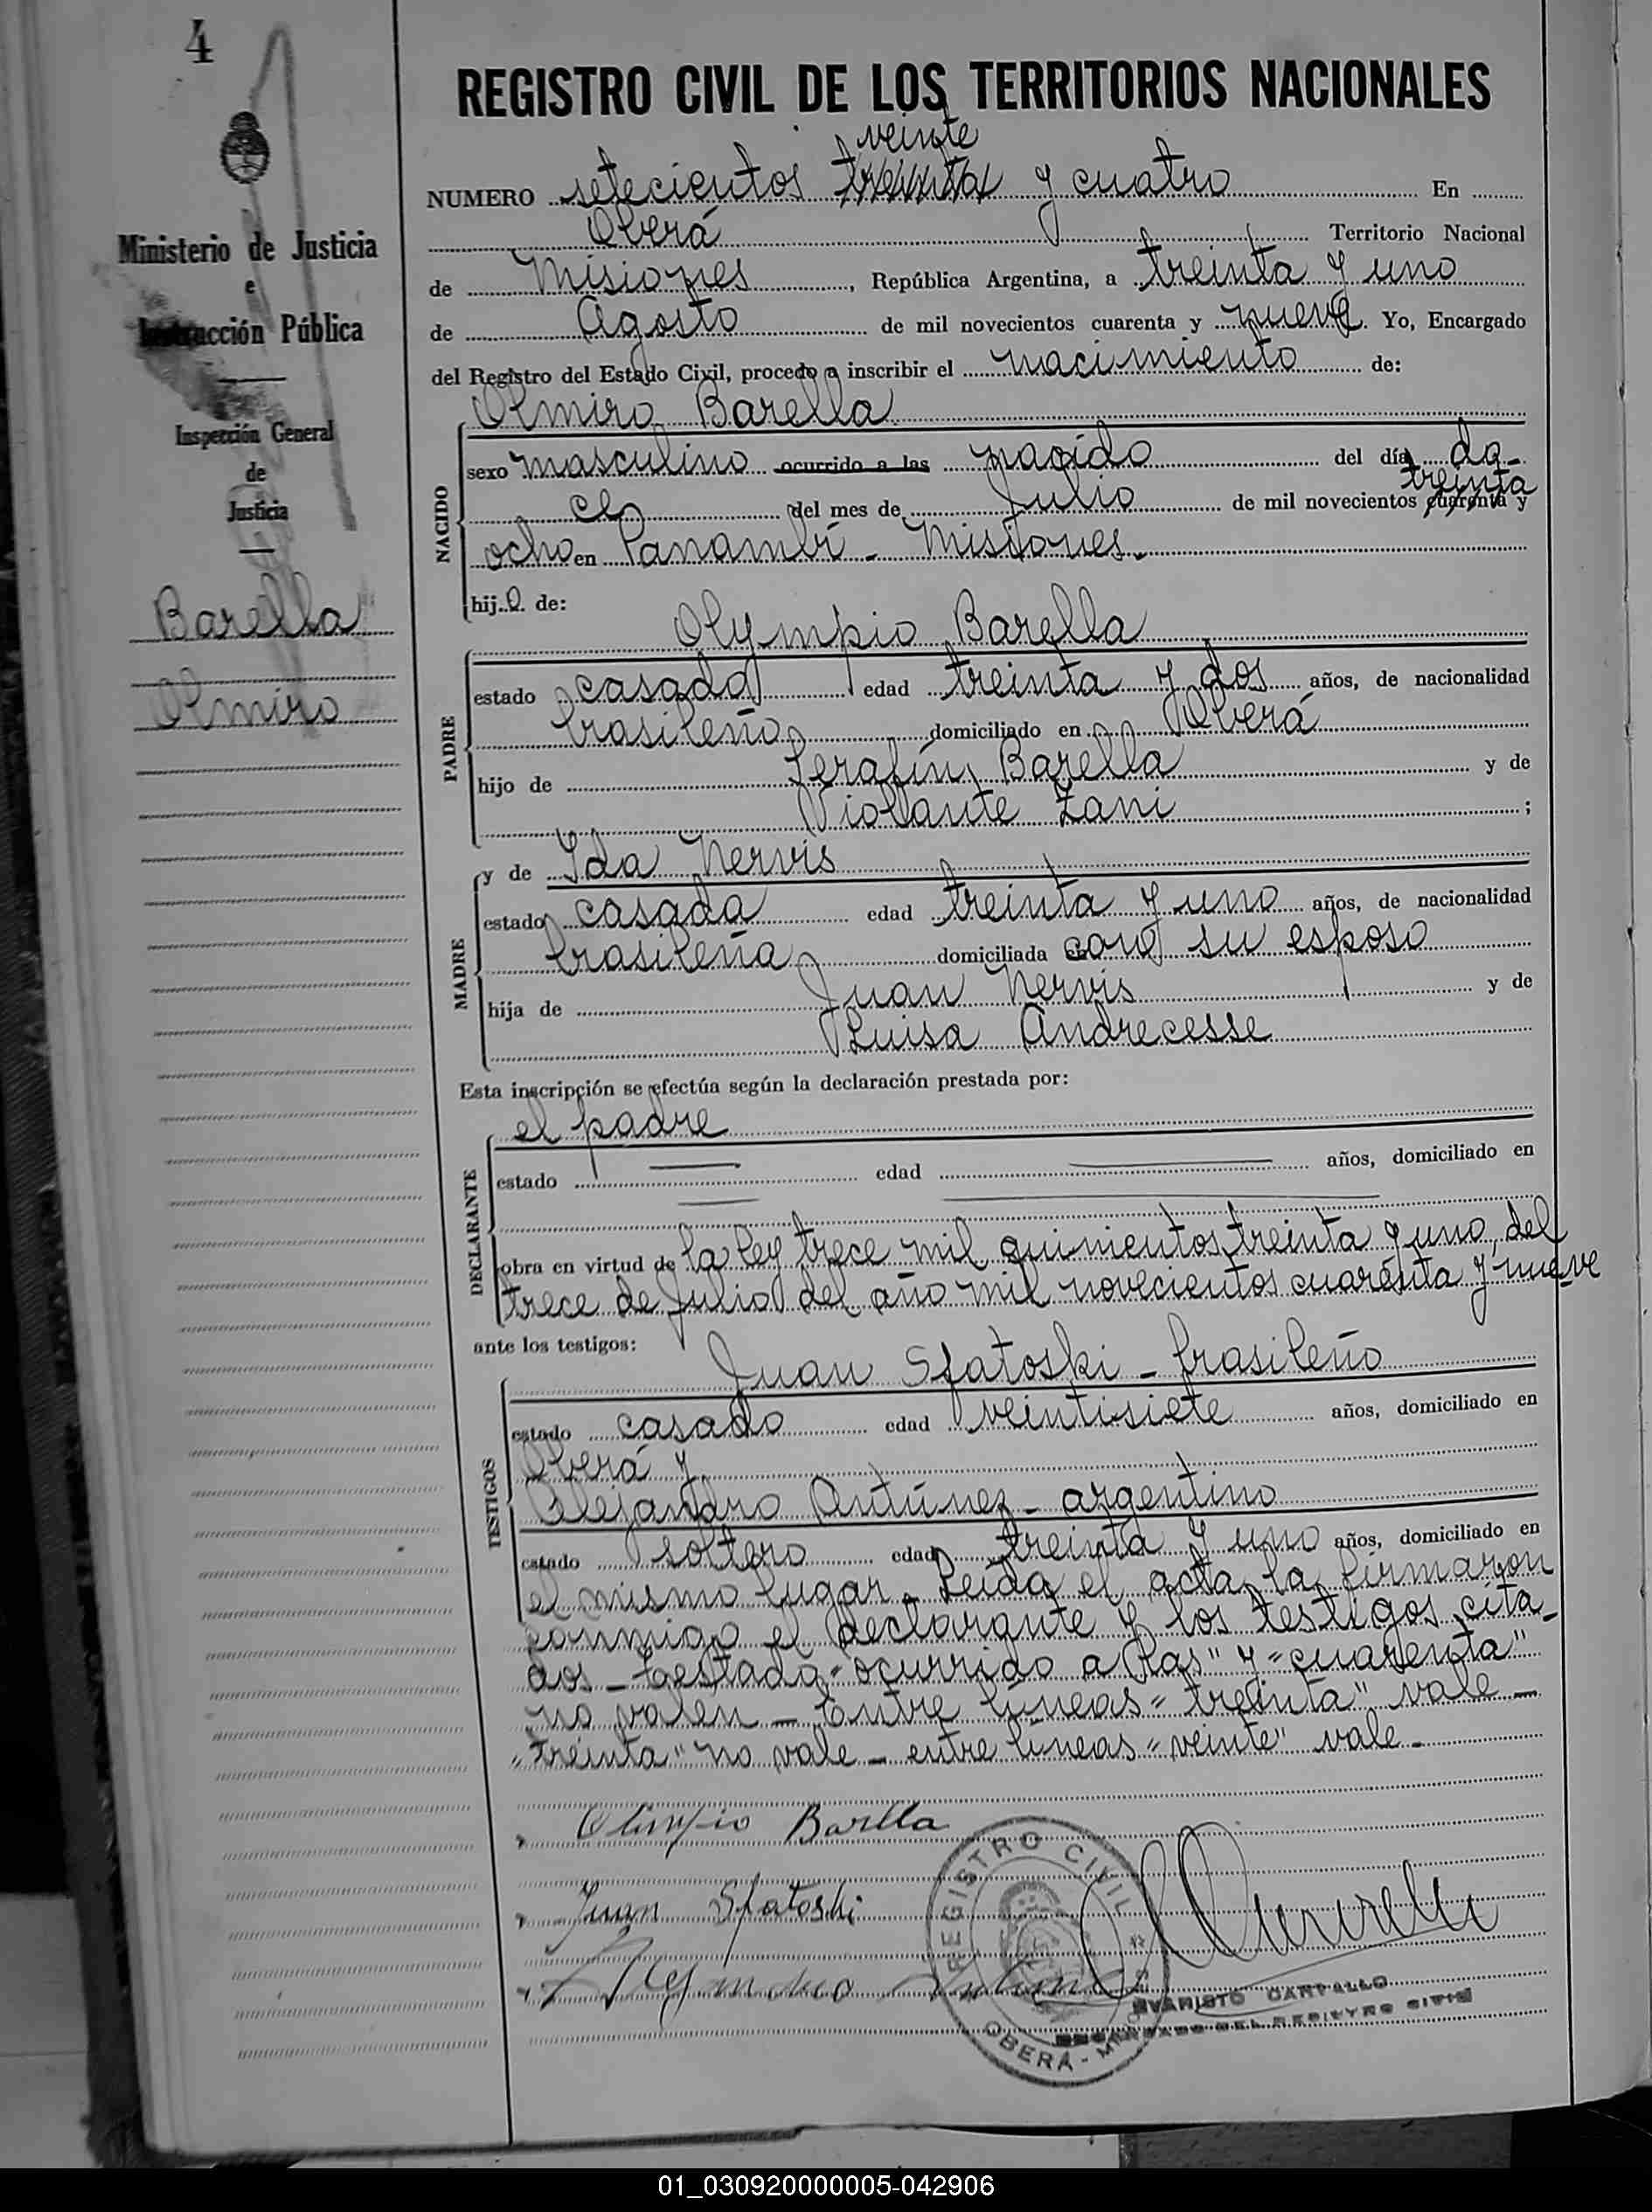 4
REGISTRO CIVIL DE LOS TERRITORIOS NACIONALES
veinte
NUMERO setecientos treinta y cuatro En
Oberá Territorio Nacional
de Misiones, República Argentina, a treinta y uno
de Agosto de mil novecientos cuarenta y nueve. Yo, Encargado
del Registro del Estado Civil, procedo a inscribir el nacimiento de:
Olmiro Barella
sexo masculino ocurrido a las nacido del día do-
treinta
ce del mes de Julio de mil novecientos cuarenta y
ocho en Panambí - Misiones.
hijo de:
NACIDO
Olympio Barella
estado casado edad treinta y dos años, de nacionalidad
brasileño domiciliado en Oberá
hijo de Serafín Barella y de
Violante Zani ;
PADRE
y de Ida Nervis
estado casada edad treinta y uno años, de nacionalidad
brasileña domiciliada con su esposo
hija de Juan Nervis y de
Luisa Andrecesse
MADRE
Esta inscripción se efectúa según la declaración prestada por:
el padre
estado — edad — años, domiciliado en
obra en virtud de la ley trece mil quinientos treinta y uno, del
trece de Julio del año mil novecientos cuarenta y nueve
DECLARANTE
ante los testigos:
Juan Sfatoski - brasileño
estado casado edad veintisiete años, domiciliado en
Oberá y
Alejandro Antúnez - argentino
estado soltero edad treinta y uno años, domiciliado en
el mismo lugar. Leída el acta, la firmaron
conmigo el declarante y los testigos cita-
dos - Testado "ocurrido a las" y "cuarenta"
no valen - Entre líneas "treinta" vale -
"treinta" no vale - entre líneas "veinte" vale.
TESTIGOS
Olimpio Barella
Juan Sfatoski
Alejandro Antunez
REGISTRO CIVIL
OBERÁ - M
EVARISTO
ENCARGADO DEL REGISTRO CIVIL
Ministerio de Justicia
e
Instrucción Pública
Inspección General
de
Justicia
Barella
Olmiro
01_030920000005-042906